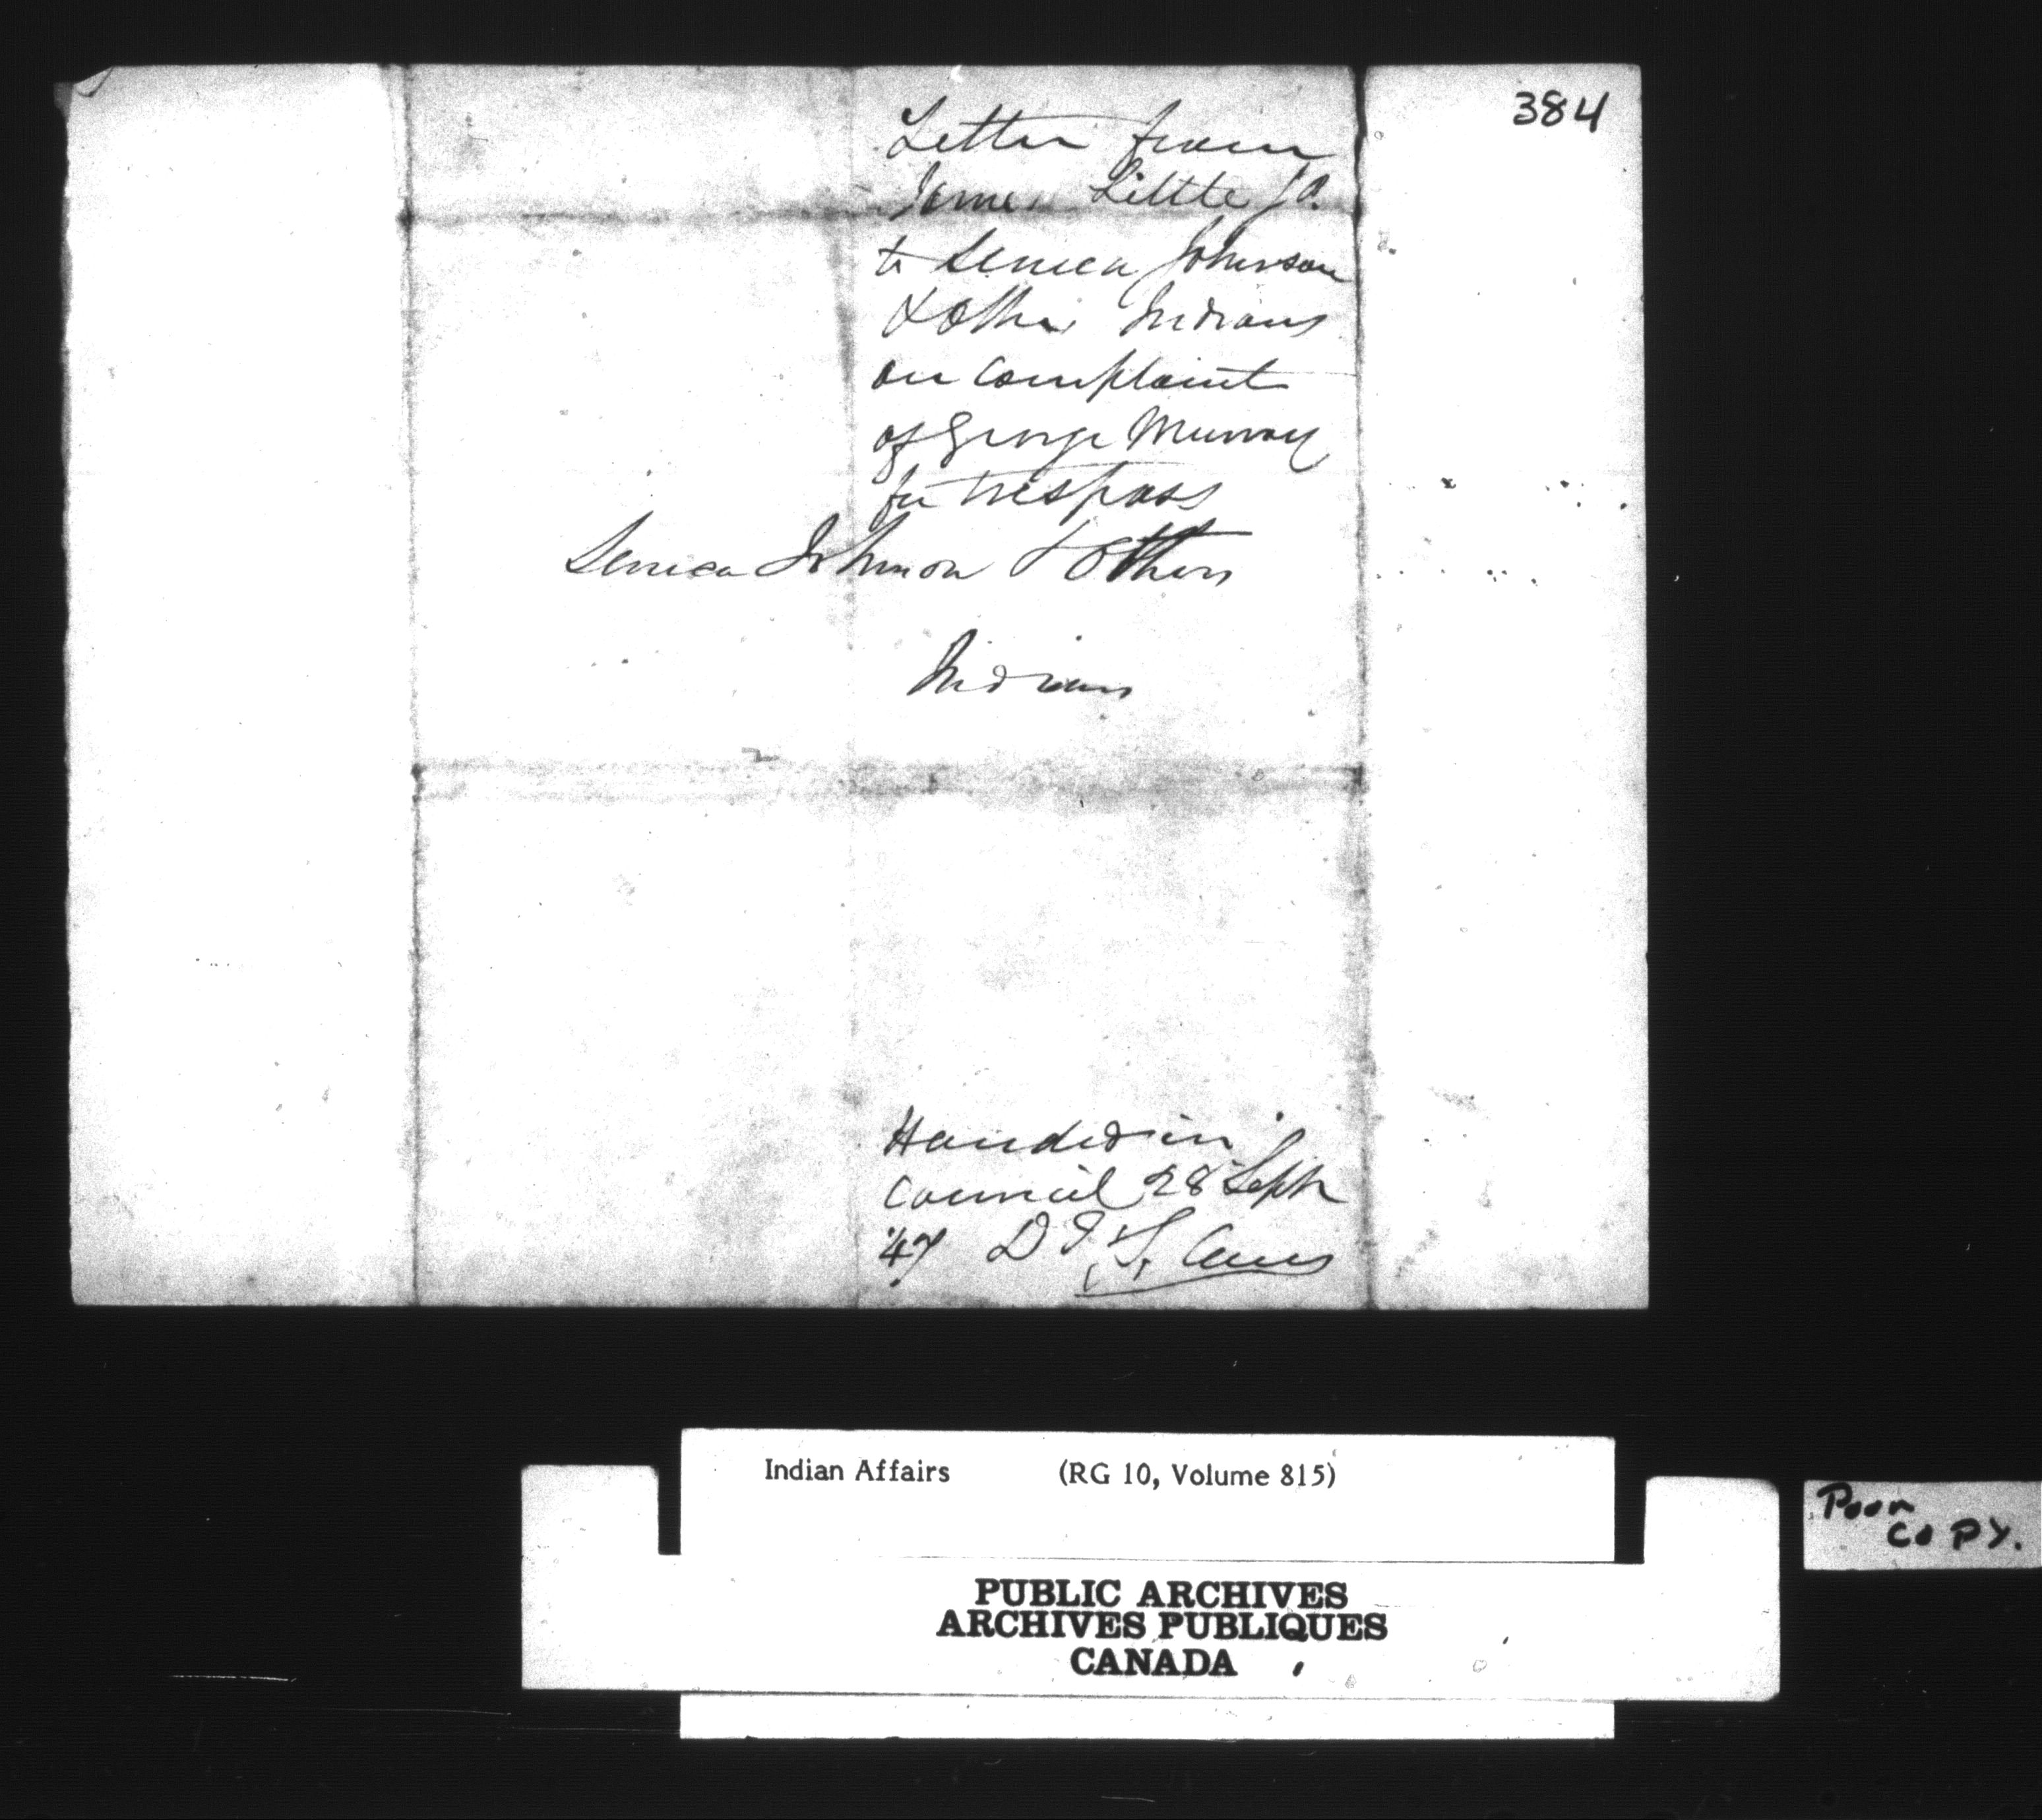 384
Letter from
James Little JP.
to Seneca Johnson
& other Indians
on complaint
of George Murray
for trespass
Seneca Johnson & Others
Indians
Handed in
Council 28 Sept
'47 D T
Indian Affairs (RG 10, Volume 815)
PUBLIC ARCHIVES
ARCHIVES PUBLIQUES
CANADA
Poor
COPY.